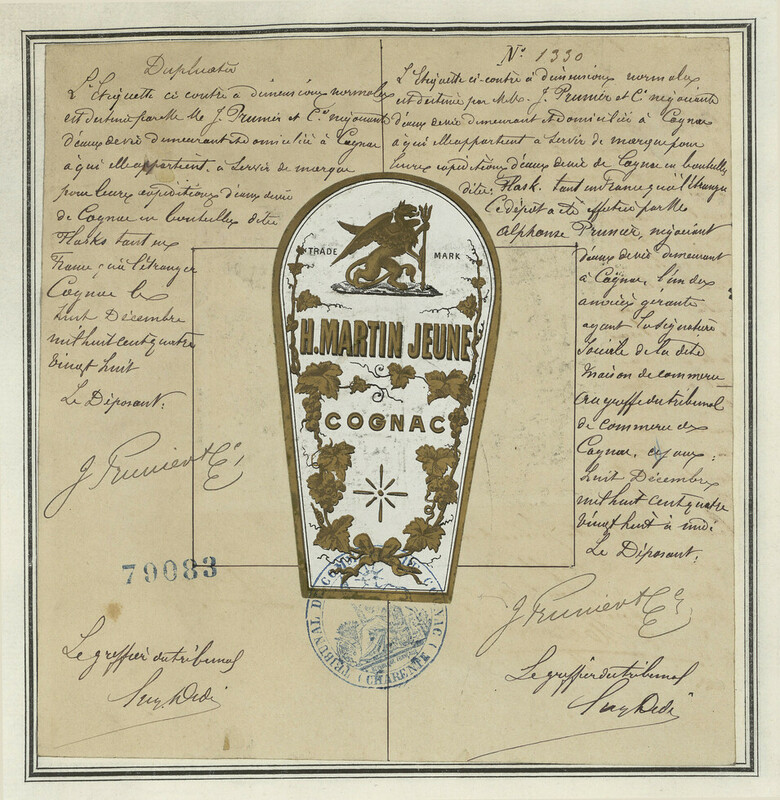 Duplicata
L'Etiquette ci contre à dimensions normales
est destinée par MM J. Prunier et Cie négociants
d'eaux de vie demeurant et domiciliés à Cognac
à qui elle appartient, à servir de marque
pour leurs expéditions d'eaux de vie
de Cognac en bouteilles dites
Flasks tant en
France, qu'à l'étranger
Cognac le
huit Décembre
mil huit cent quatre
vingt huit
Le Déposant:
J. Prunier & Cie
79083
Le greffier du tribunal
N° 1330
L'Etiquette ci-contre à dimensions normales
est destinée par MM. J. Prunier et Cie négociants
d'eaux de vie demeurant et domiciliés à Cognac
à qui elle appartient à servir de marque pour
leurs expéditions d'eaux de vie de Cognac en bouteilles
dites: Flask. tant en France qu'à l'étranger
Ce dépôt a été effectué par Mr
Alphonse Prunier, négociant
d'eaux de vie demeurant
à Cognac, l'un des
associés gérants
ayant la signature
sociale de la dite
maison de commerce
au greffe du tribunal
de commerce de
Cognac, ce jour:
huit Décembre
mil huit cent quatre
vingt huit à midi
Le Déposant:
J. Prunier & Cie
Le greffier du tribunal
TRADE MARK
H. MARTIN JEUNE
COGNAC
TRIBUNAL DE COMMERCE DE COGNAC
(CHARENTE)